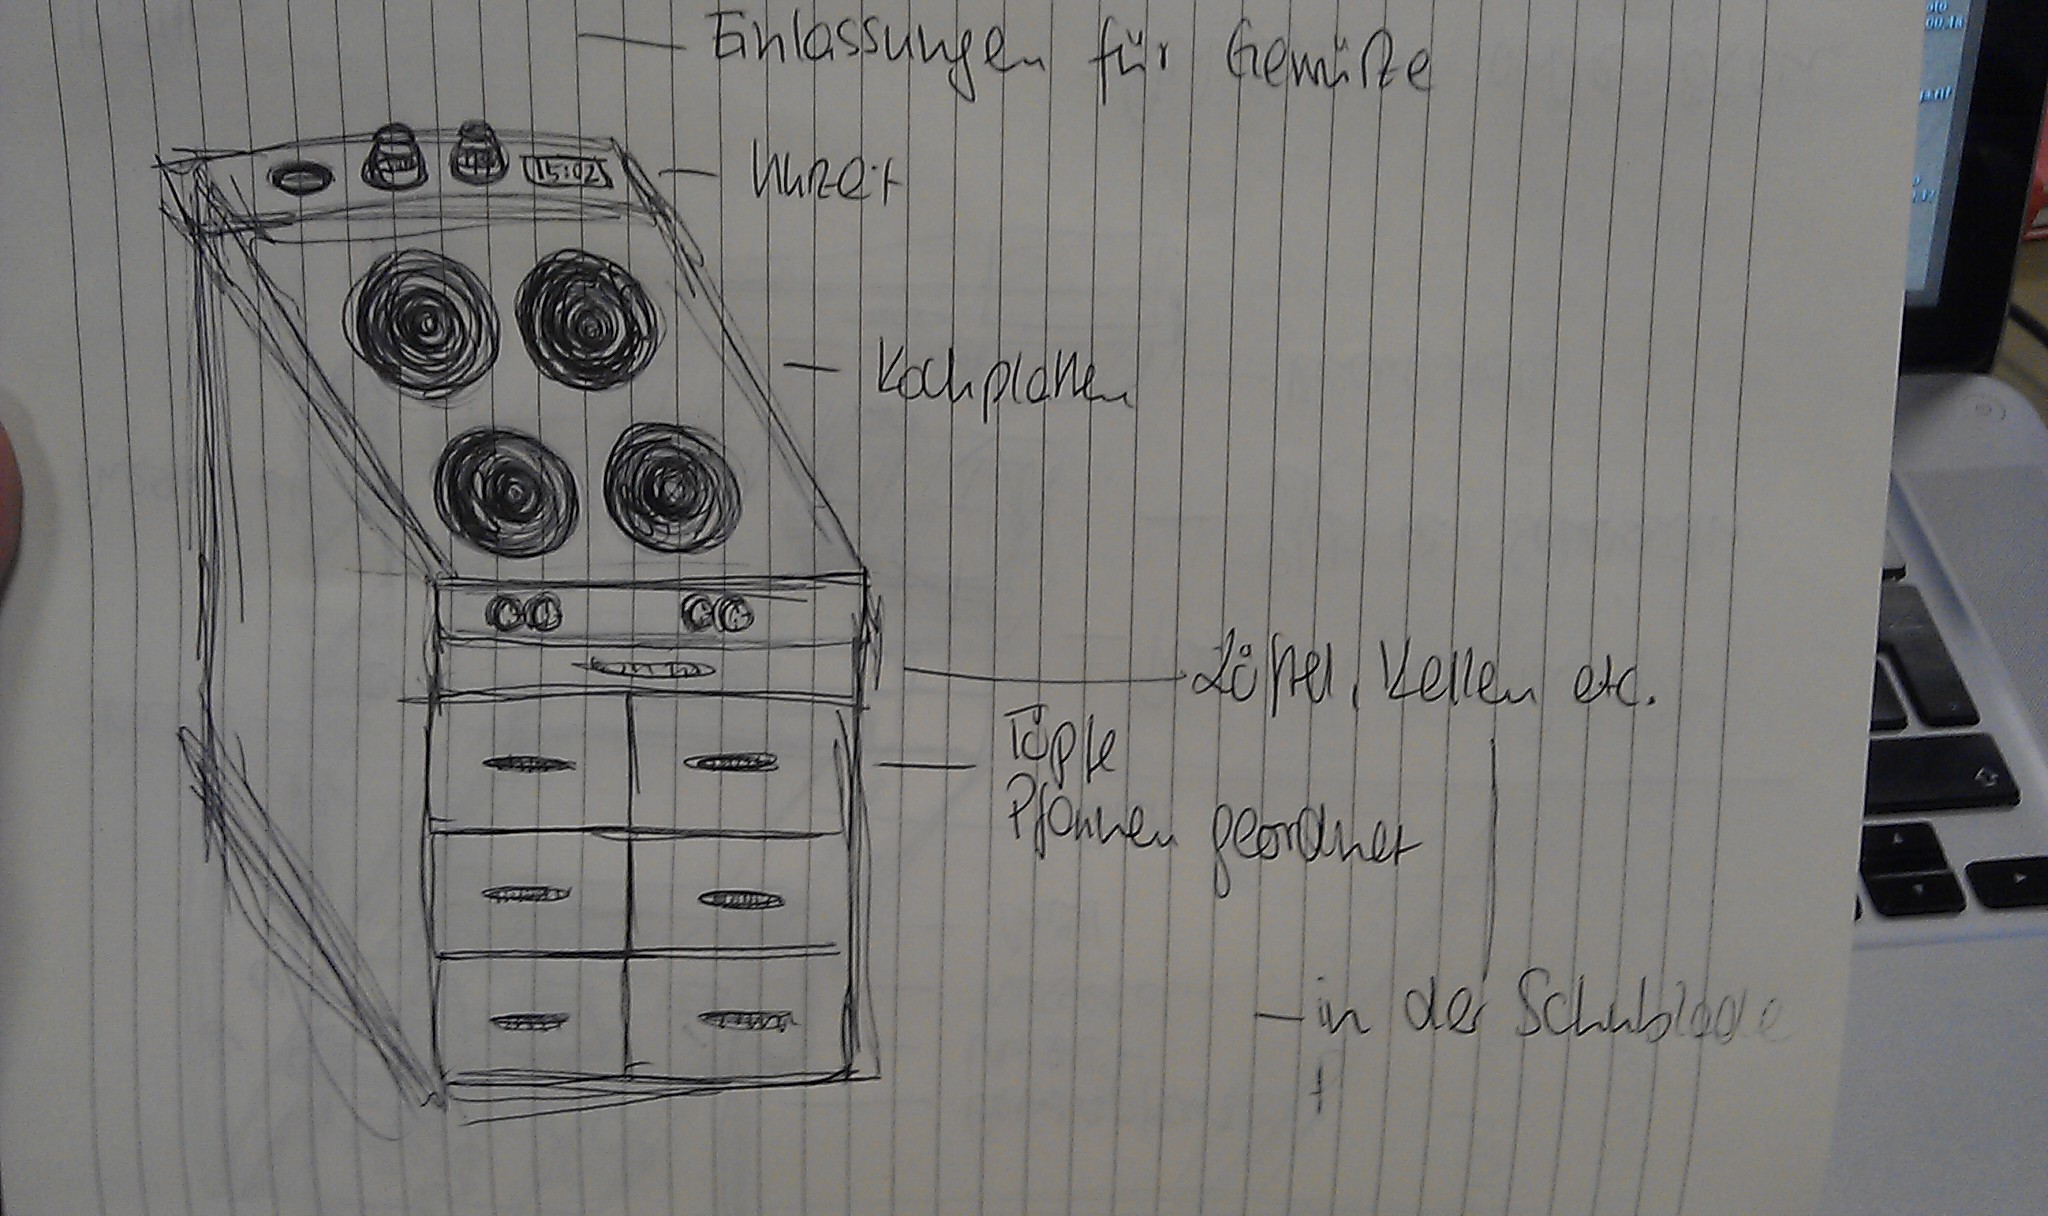 Einlassungen für Gewürze
15:02
Uhrzeit
Kochplatten
Löffel, Kellen etc.
Töpfe
Pfannen geordnet
- in der Schublade